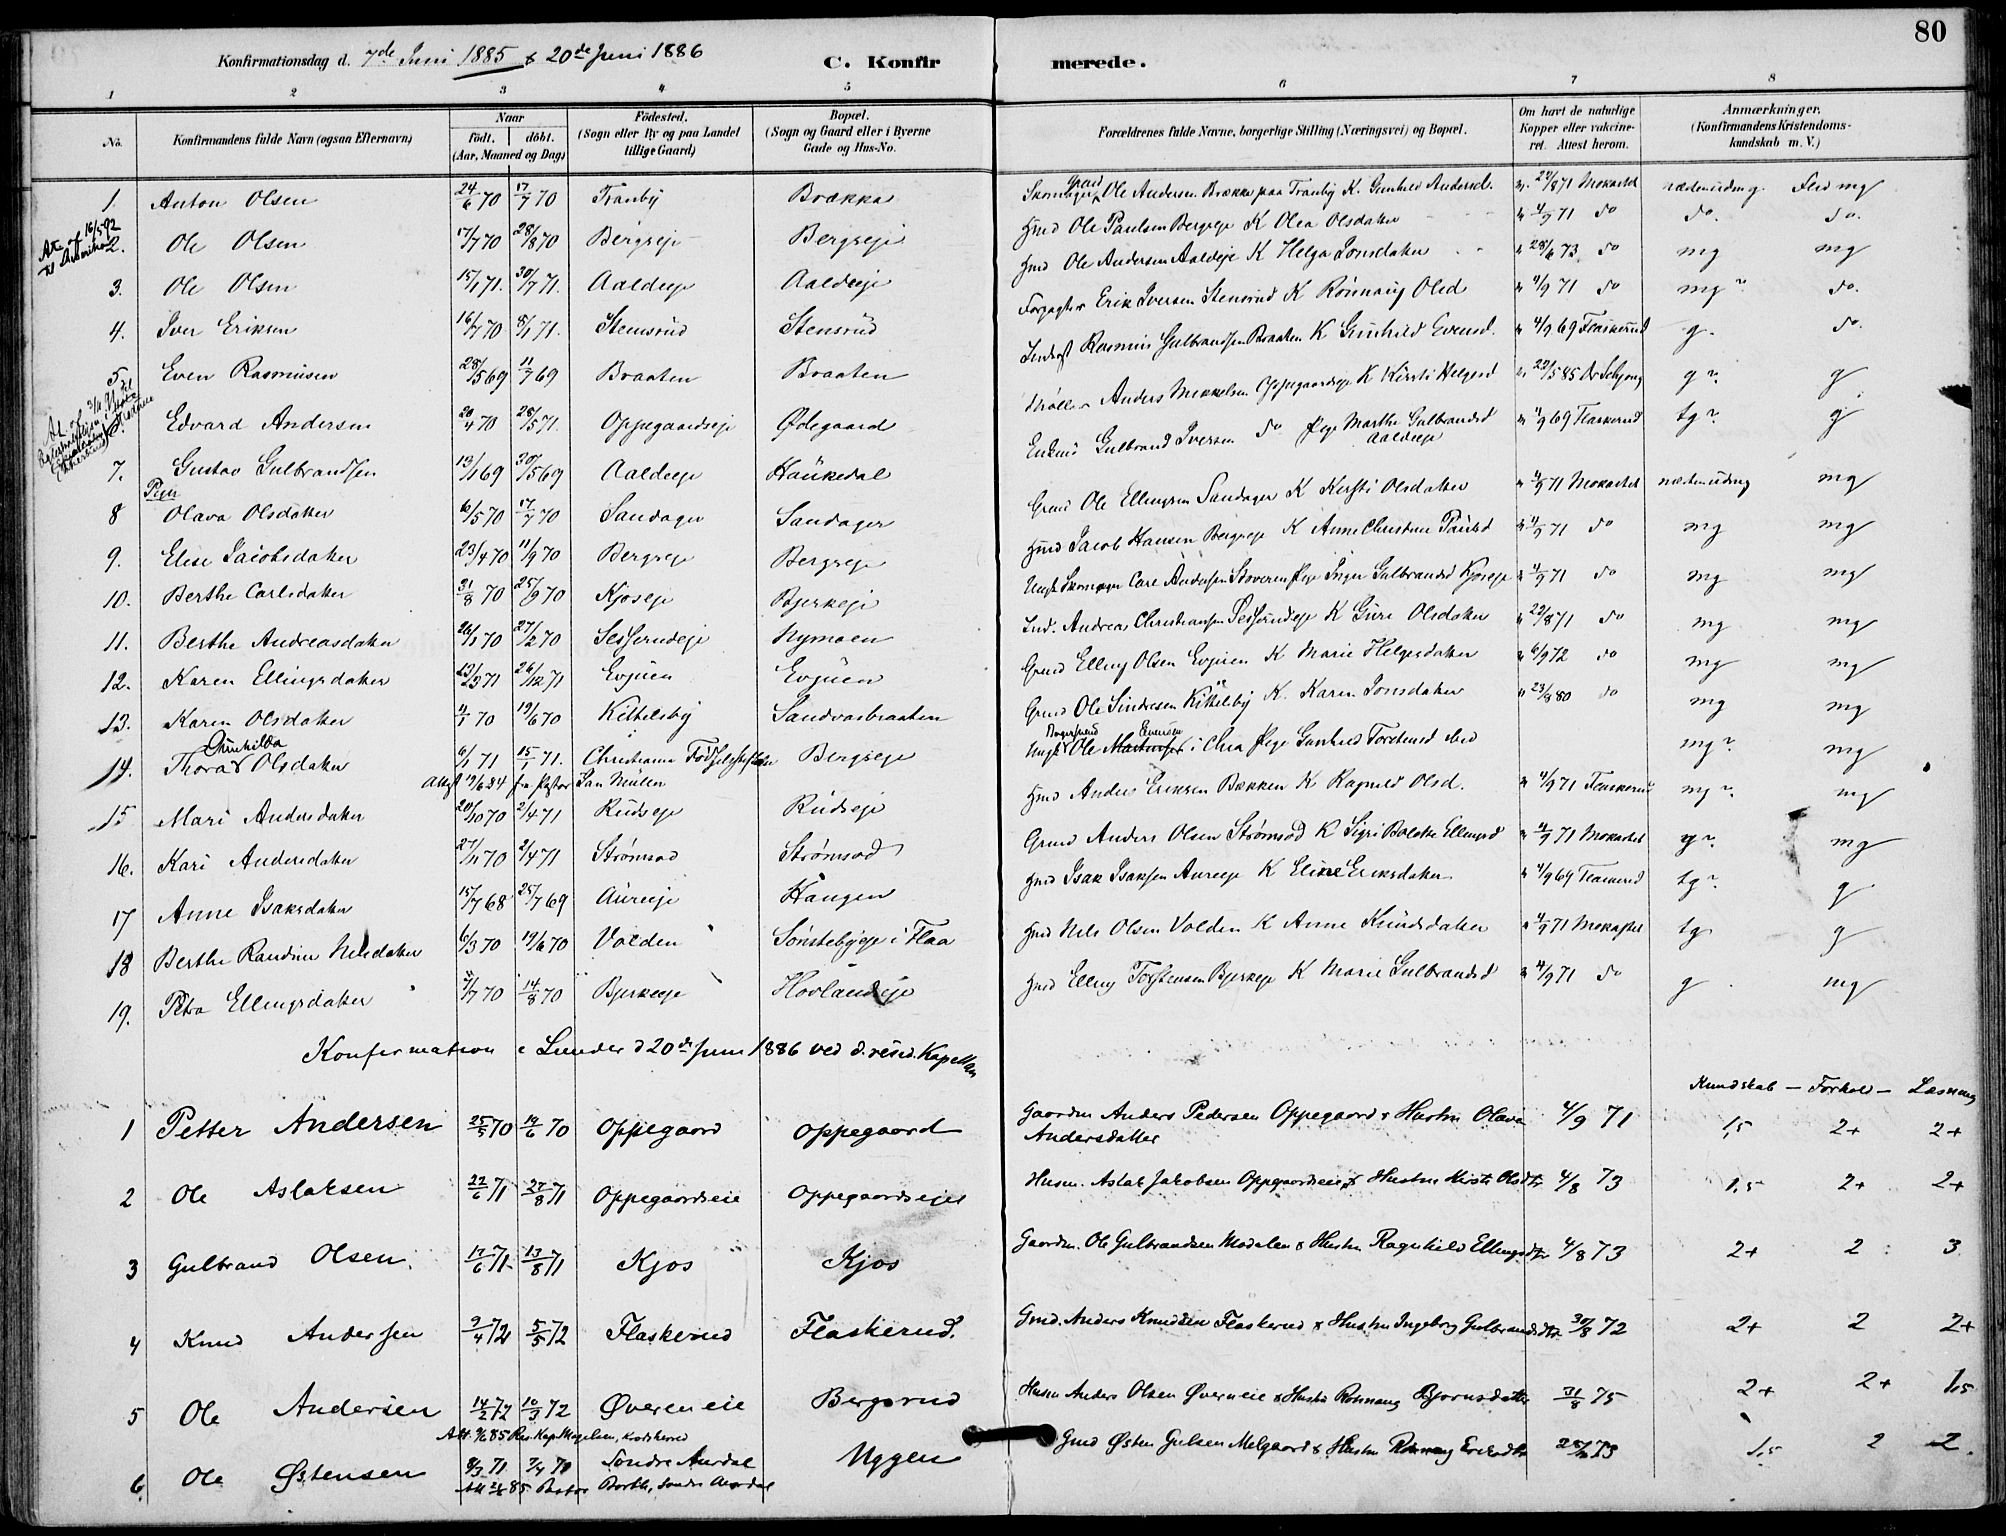 80
Konfirmationsdag d. 7de Juni 1885 & 20de Juni 1886 C. Konfirmerede.
1 2 3 4 5 6 7 8
No. Konfirmandens fulde Navn (ogsaa Efternavn) Naar født. døbt. (Aar, Maaned og Dag) Fødested. (Sogn eller By og paa Landet tillige Gaard) Bopæl. (Sogn og Gaard eller i Byerne Gade og Hus-No. Forældrenes fulde Navne, borgerlige Stilling (Næringsvei) og Bopæl. Om havt de naturlige Kopper eller vakcineret. Attest herom. Anmærkninger. (Konfirmandens Kristendomskundskab m. V.)
1. Anton Olsen 24/6 70 17/7 70 Tranby Brækka Ole Andersen Brække paa Tranby K. Gunhild Andersd. 22/8 71 mg
2. Ole Olsen 17/7 70 28/8 70 Bergseje Bergseje Hmd Ole Paulsen Bergseje K Olea Olsdatter 4/9 71 do do. do.
3. Ole Olsen 15/1 71. 30/7 71. Aaldseje Aaldseje Hmd Ole Andersen Aaldseje K Helga Jonsdatter 28/6 73 do mg mg
4. Iver Eriksen 16/7 70 8/1 71. Stensrud Stensrud Forpagter Erik Iversen Stensrud K Rönnaug Olsd 4/9 71 do mg do.
5. Even Rasmusen 28/5 69 11/7 69 Braaten Braaten Rasmus Gulbrandsen Braaten K Gunhild Evensd. 4/9 69 Flaskerud g. do.
Edvard Andersen 20/4 70 28/5 71. Oppegaardseje Ødegaard Anders Mikkelsen Oppegaardseje K Kirsti Helgesd 22/5 85 g g
7. Gustav Gulbrandsen 13/1 69 30/5 69 Aaldseje Haukedal Gulbrand Iversen do Pige Marthe Gulbrandsd Aaldseje 4/9 69 Flaskerud tg g
Piger
8 Olava Olsdatter 6/5 70 17/7 70 Sandager Sandager Grmd Ole Ellingsen Sandager K Kersti Olsdatter 4/9 71 mg
9. Elise Jacobsdatter 23/4 70 11/9 70 Bergseje Bergseje Hmd Jacob Hansen Bergseje K Anne Christine Paulsd 4/9 71 do mg mg
10. Berthe Carlsdatter 31/8 70 25/9 70 Kjoseje Bjerkeje Ungk Skomager Carl Andersen Pige Inger Gulbrandsd Kjoseje 4/9 71 do mg mg
11. Berthe Andreasdatter 26/1 70 27/2 70 Sesserudeje Nymoen Ind. Andreas Christiansen Sesserudeje K Guri Olsdatter 22/8 71 do mg mg
12. Karen Ellingsdatter 26/12 71 Evjuen Evjuen Grmd Elling Olsen Evjuen K Marie Helgesdatter 6/9 72 do mg mg
13. Karen Olsdatter 19/6 70 Kittelsby Sandvasbraaten Grmd Ole Sindresen Kittelsby K. Karen Jonsdatter 23/8 80 do mg mg
14. Thora Gunhilda Olsdatter 6/1 71 15/1 71. Christiania Fødselsstiftelse Bergseje Ungk Ole Evensen i Chra Pige Gunhild Torstensd mg mg
15 Mari Andersdatter 20/10 70 2/4 71 Rudseje Rudseje Hmd Anders Eriksen Bækken K Ragnild Olsd. 4/9 71 Flaskerud mg mg
16. Kari Andersdatter 27/11 70 2/4 71 Strömsod Strömsod Grmd Anders Olsen Strömsod K Sigri Ellingsd 4/9 71 g mg
17 Anne Isaksdatter 15/7 68 25/7 69 Aureeje Haugen Hmd Isak Isaksen Aureeje K Eline Eriksdatter 4/9 69 Flaskerud tg g
18 Berthe Randine Nilsdatter 6/3 70 19/6 70 Volden Sönstebyeje i Flaa Hmd Nils Olsen Volden K Anne Knudsdatter 4/9 71 tg g
19. Petra Ellingsdatter 14/8 70 Bjerkeeje Hovlandseje Hmd Elling Torstensen Bjerkeje K Marie Gulbrandsd 4/9 71 do g mg
Konfirmation i Lunder d 20de Juni 1886 ved d. resid. Kapellan
Kundskab — Forhold — Læsning
1 Petter Andersen 25/5 70 12/6 70 Oppegaard Oppegaard Gaardm Anders Pedersen Oppegaard & Hustru Olava Andersdatter 4/9 71 1,5 2+ 2+
2 Ole Aslaksen 22/6 71 27/8 71 Oppegaardseie Oppegaardsejet Husm. Aslak Jakobsen Oppegaardseie & Hustru Kirsti Olsdtr 4/8 73 1,5 2+ 2+
3 Gulbrand Olsen 17/6 71 13/8 71 Kjos Kjos Gaardm. Ole Gulbrandsen Modalen & Hustru Ragnhild Ellingsdtr 4/8 73 2+ 2 3
4 Knud Andersen 9/4 72 5/5 72 Flaskerud Flaskerud. Gmd. Anders Knudsen Flaskerud & Hustru Ingeborg Gulbrandsdtr 30/8 72 2+ 2 2+
5 Ole Andersen 14/2 72 10/3 72 Øvereneie Bergsrud Husm Anders Olsen Øverneie & Hustru Rønnaug Bjornsdatter 31/8 75 2+ 2+ 1,5
6. Ole Østensen 8/3 71 Søndre Aurdal Uggen Gmd Østen Gulsen Melgaard & Hustru Rønnaug 1,5 2 2.